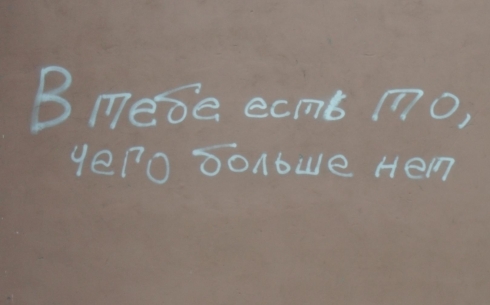 В тебе есть то,
чего больше нет